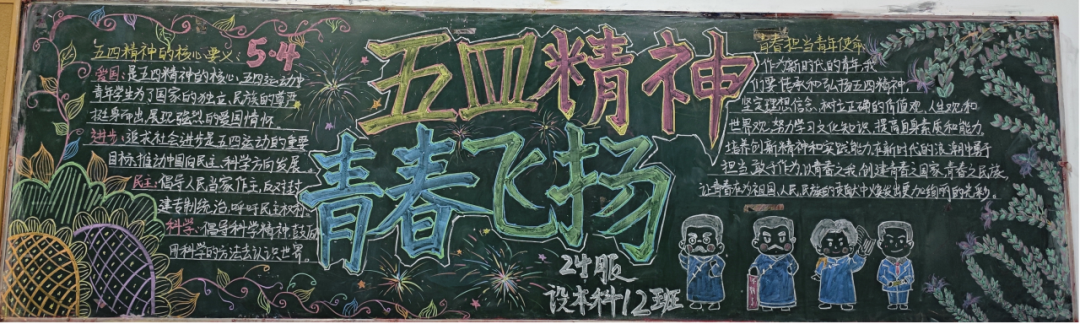 五四精神的核心要义:
5·4
爱国:是五四精神的核心,五四运动中
青年学生为了国家的独立,民族的尊严
挺身而出,展现强烈的爱国情怀.
进步:追求社会进步是五四运动的重要
目标,推动中国向民主、科学方向发展。
民主:倡导人民当家作主,反对封
建专制统治,呼吁民主权利.
科学:倡导科学精神鼓励
用科学的方法去认识世界.
五四精神
青春飞扬
24服
设本科12班
青春担当青年使命
作为新时代的青年,我
们要传承和弘扬五四精神,
坚定理想信念,树立正确的价值观,人生观和
世界观,努力学习文化知识,提高自身素质和能力,
培养创新精神和实践能力,在新时代的浪潮中勇于
担当,敢于作为,以青春之我,创建青春之国家,青春之民族,
让青春在为祖国,人民,民族的贡献中焕发出更加绚丽的光彩.